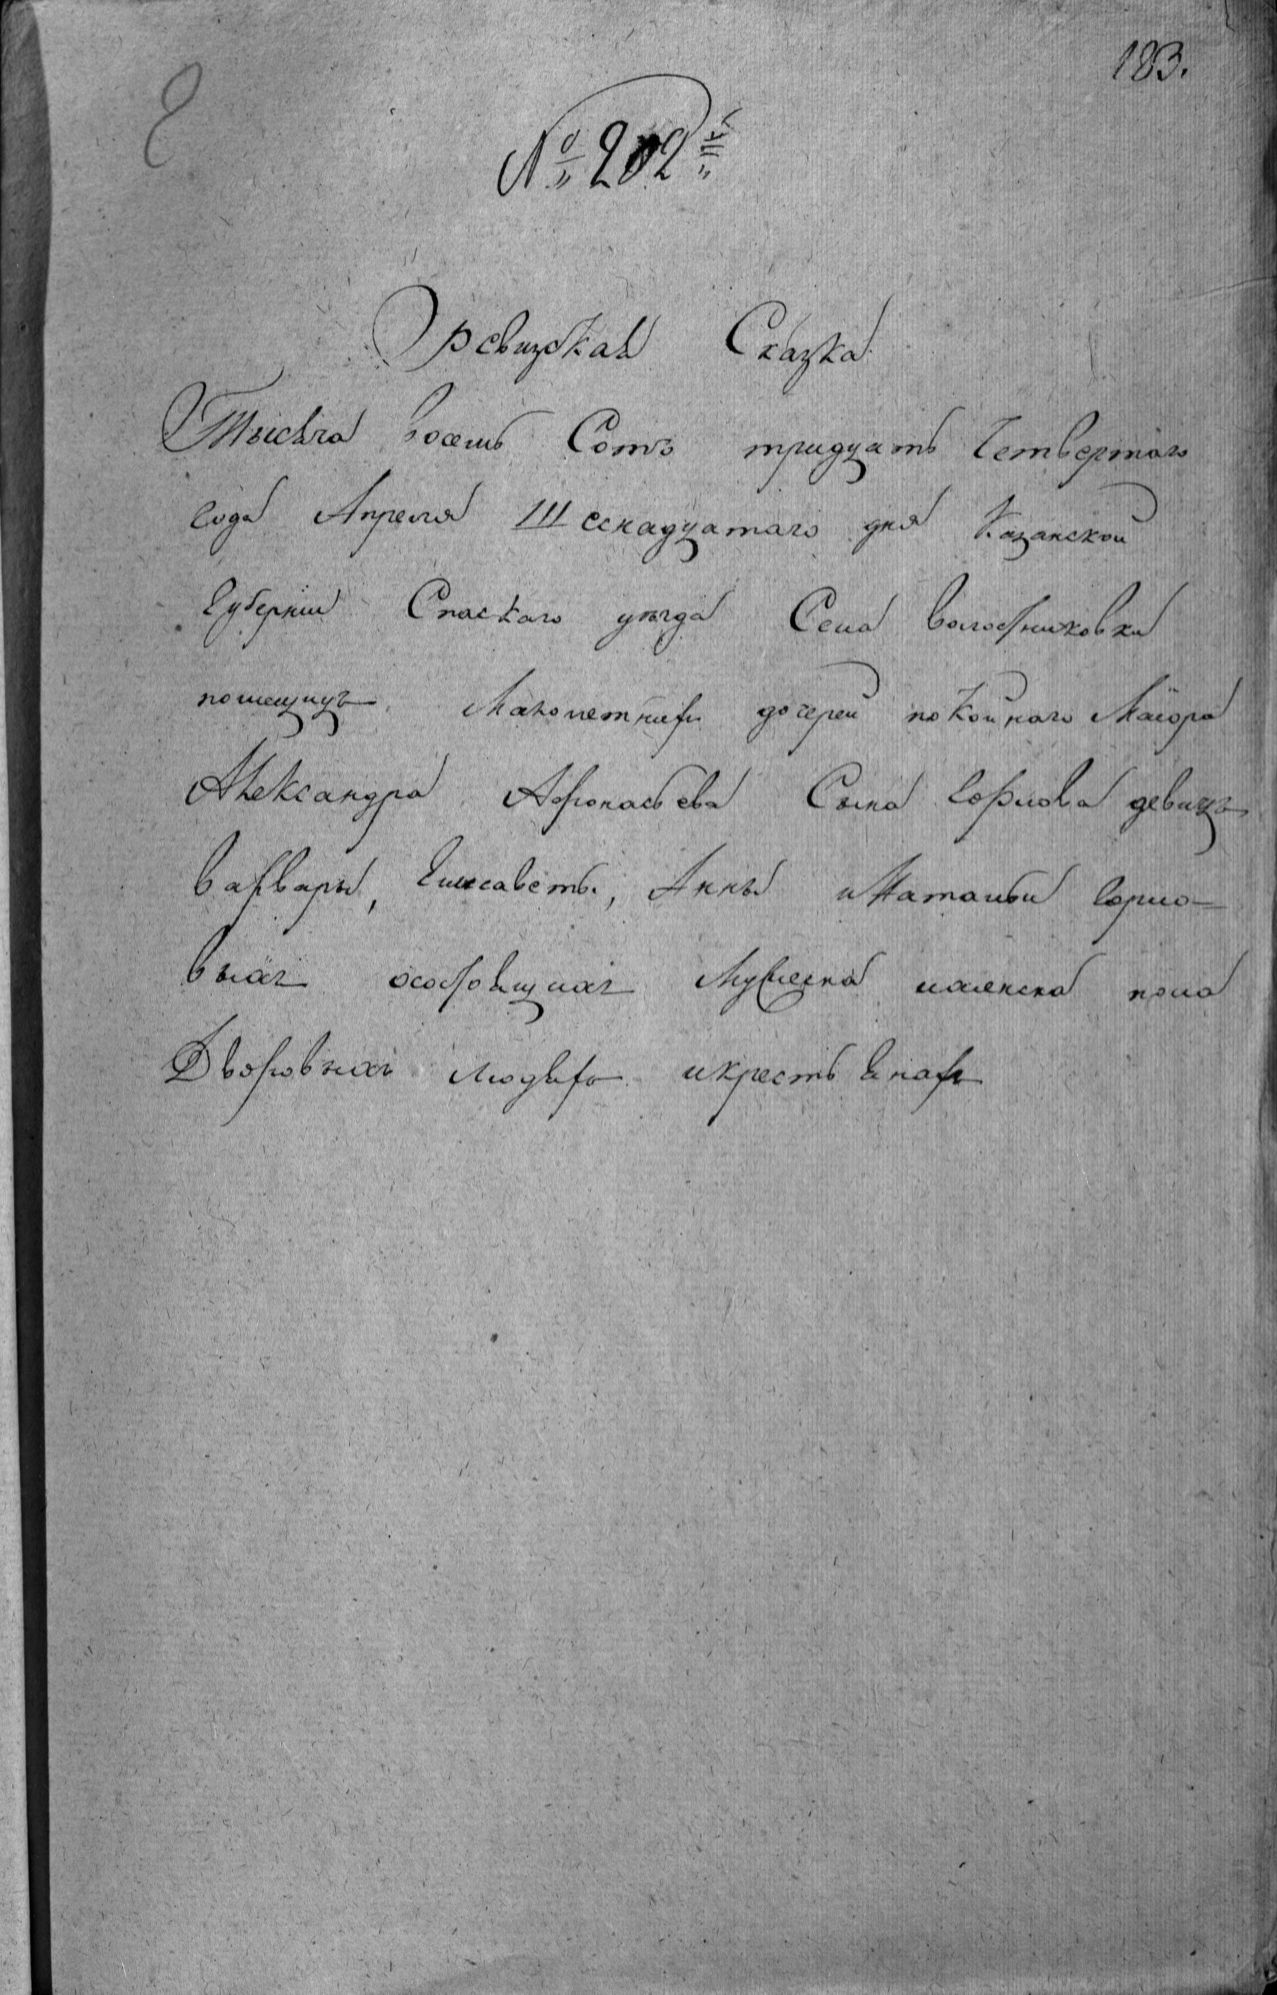 183.
№ 202й
Ревизская Сказка
Тысяча восемь Сотъ тридцать Четвертаго
года Апреля Шеснадцатаго дня Казанской
Губернии Спаскаго уезда Села Болховской
помещицъ Малолетнихъ дочерей покойнаго Маиора
Александра Афонасьева Сына Горлова девицъ
Варвары, Елисаветы, Анны и Натальи Горло=
выхъ осостоящихъ Мужеска иженска пола
Дворовыхъ людехъ икрестьянахъ